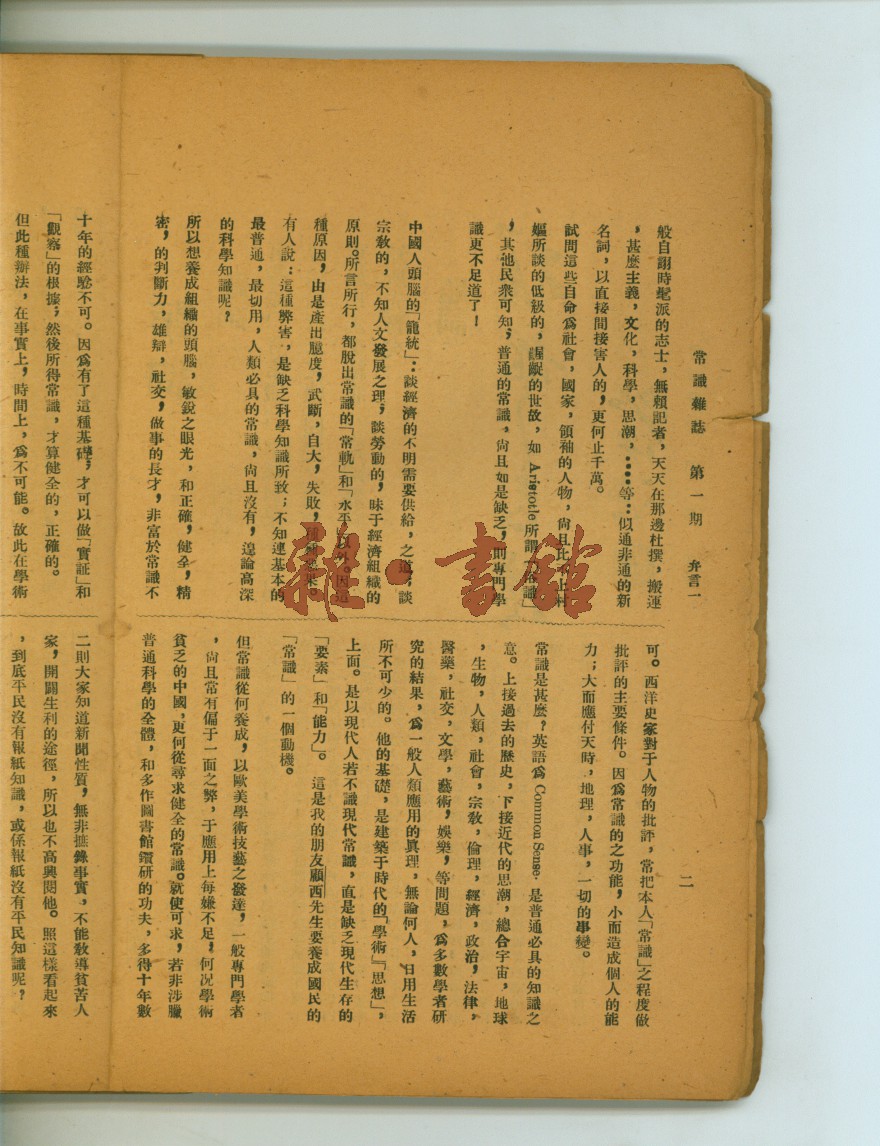 常識雜誌　第一期　弁言一
二
般自詡時髦派的志士，無賴記者，天天在那邊杜撰，搬運
，甚麽主義，文化，科學，思潮，……等：似通非通的新
名詞，以直接間接害人的，更何止千萬。
試問這些自命爲社會，國家，領袖的人物，尙且比不上村
嫗所談的低級的，齷齪的世故，如 Aristotle 所謂「俗識」
，其池民衆可知；普通的常識，尙且如是缺乏，則專門學
識更不足道了！
中國人頭腦的「龍統」：談經濟的不明需要供給，之道；談
宗敎的，不知人文發展之理；談勞動的，昧于經濟組織的
原則。所言所行，都脫出常識的「常軌」和「水平」以外。因這
種原因，由是產出臆度，武斷，自大，失敗，種種惡果。
有人說：這種弊害，是缺乏科學知識所致；不知連基本的
最普通，最切用，人類必具的常識，尙且沒有，遑論高深
的科學知識呢？
所以想養成組織的頭腦，敏銳之眼光，和正確，健全，精
密，的判斷力，雄辯，社交，做事的長才，非富於常識不
可。西洋史家對于人物的批評，常把本人「常識」之程度做
批評的主要條件。因爲常識的之功能，小而造成個人的能
力；大而應付天時，地理，人事，一切的事變。
常識是甚麽？英語爲 Common Sense. 是普通必具的知識之
意。上接過去的歷史，下接近代的思潮，總合宇宙，地球
，生物，人類，社會，宗敎，倫理，經濟，政治，法律，
醫藥，社交，文學，藝術，娛樂，等問題，爲多數學者研
究的結果，爲一般人類應用的眞理，無論何人，日用生活
所不可少的。他的基礎，是建築于時代的「學術」「思想」，
上面。是以現代人若不識現代常識，直是缺乏現代生存的
「要素」和「能力」。這是我的朋友顧西先生要養成國民的
「常識」的一個動機。
但常識從何養成，以歐美學術技藝之發達，一般專門學者
，尙且常有偏于一面之弊，于應用上每嫌不足，何況學術
貧乏的中國，更何從尋求健全的常識。就使可求，若非涉臘
普通科學的全體，和多作圖書館鑽研的功夫，多得十年數
十年的經驗不可。因爲有了這種基礎，才可以做「實証」和
「觀察」的根據；然後所得常識，才算健全的，正確的。
但此種辦法，在事實上，時間上，爲不可能。故此在學術
二則大家知道新聞性質，無非摭錄事實，不能敎導貧苦人
家，開闢生利的途徑，所以也不高興閱他。照這樣看起來
，到底平民沒有報紙知識，或係報紙沒有平民知識呢？
雜·書館